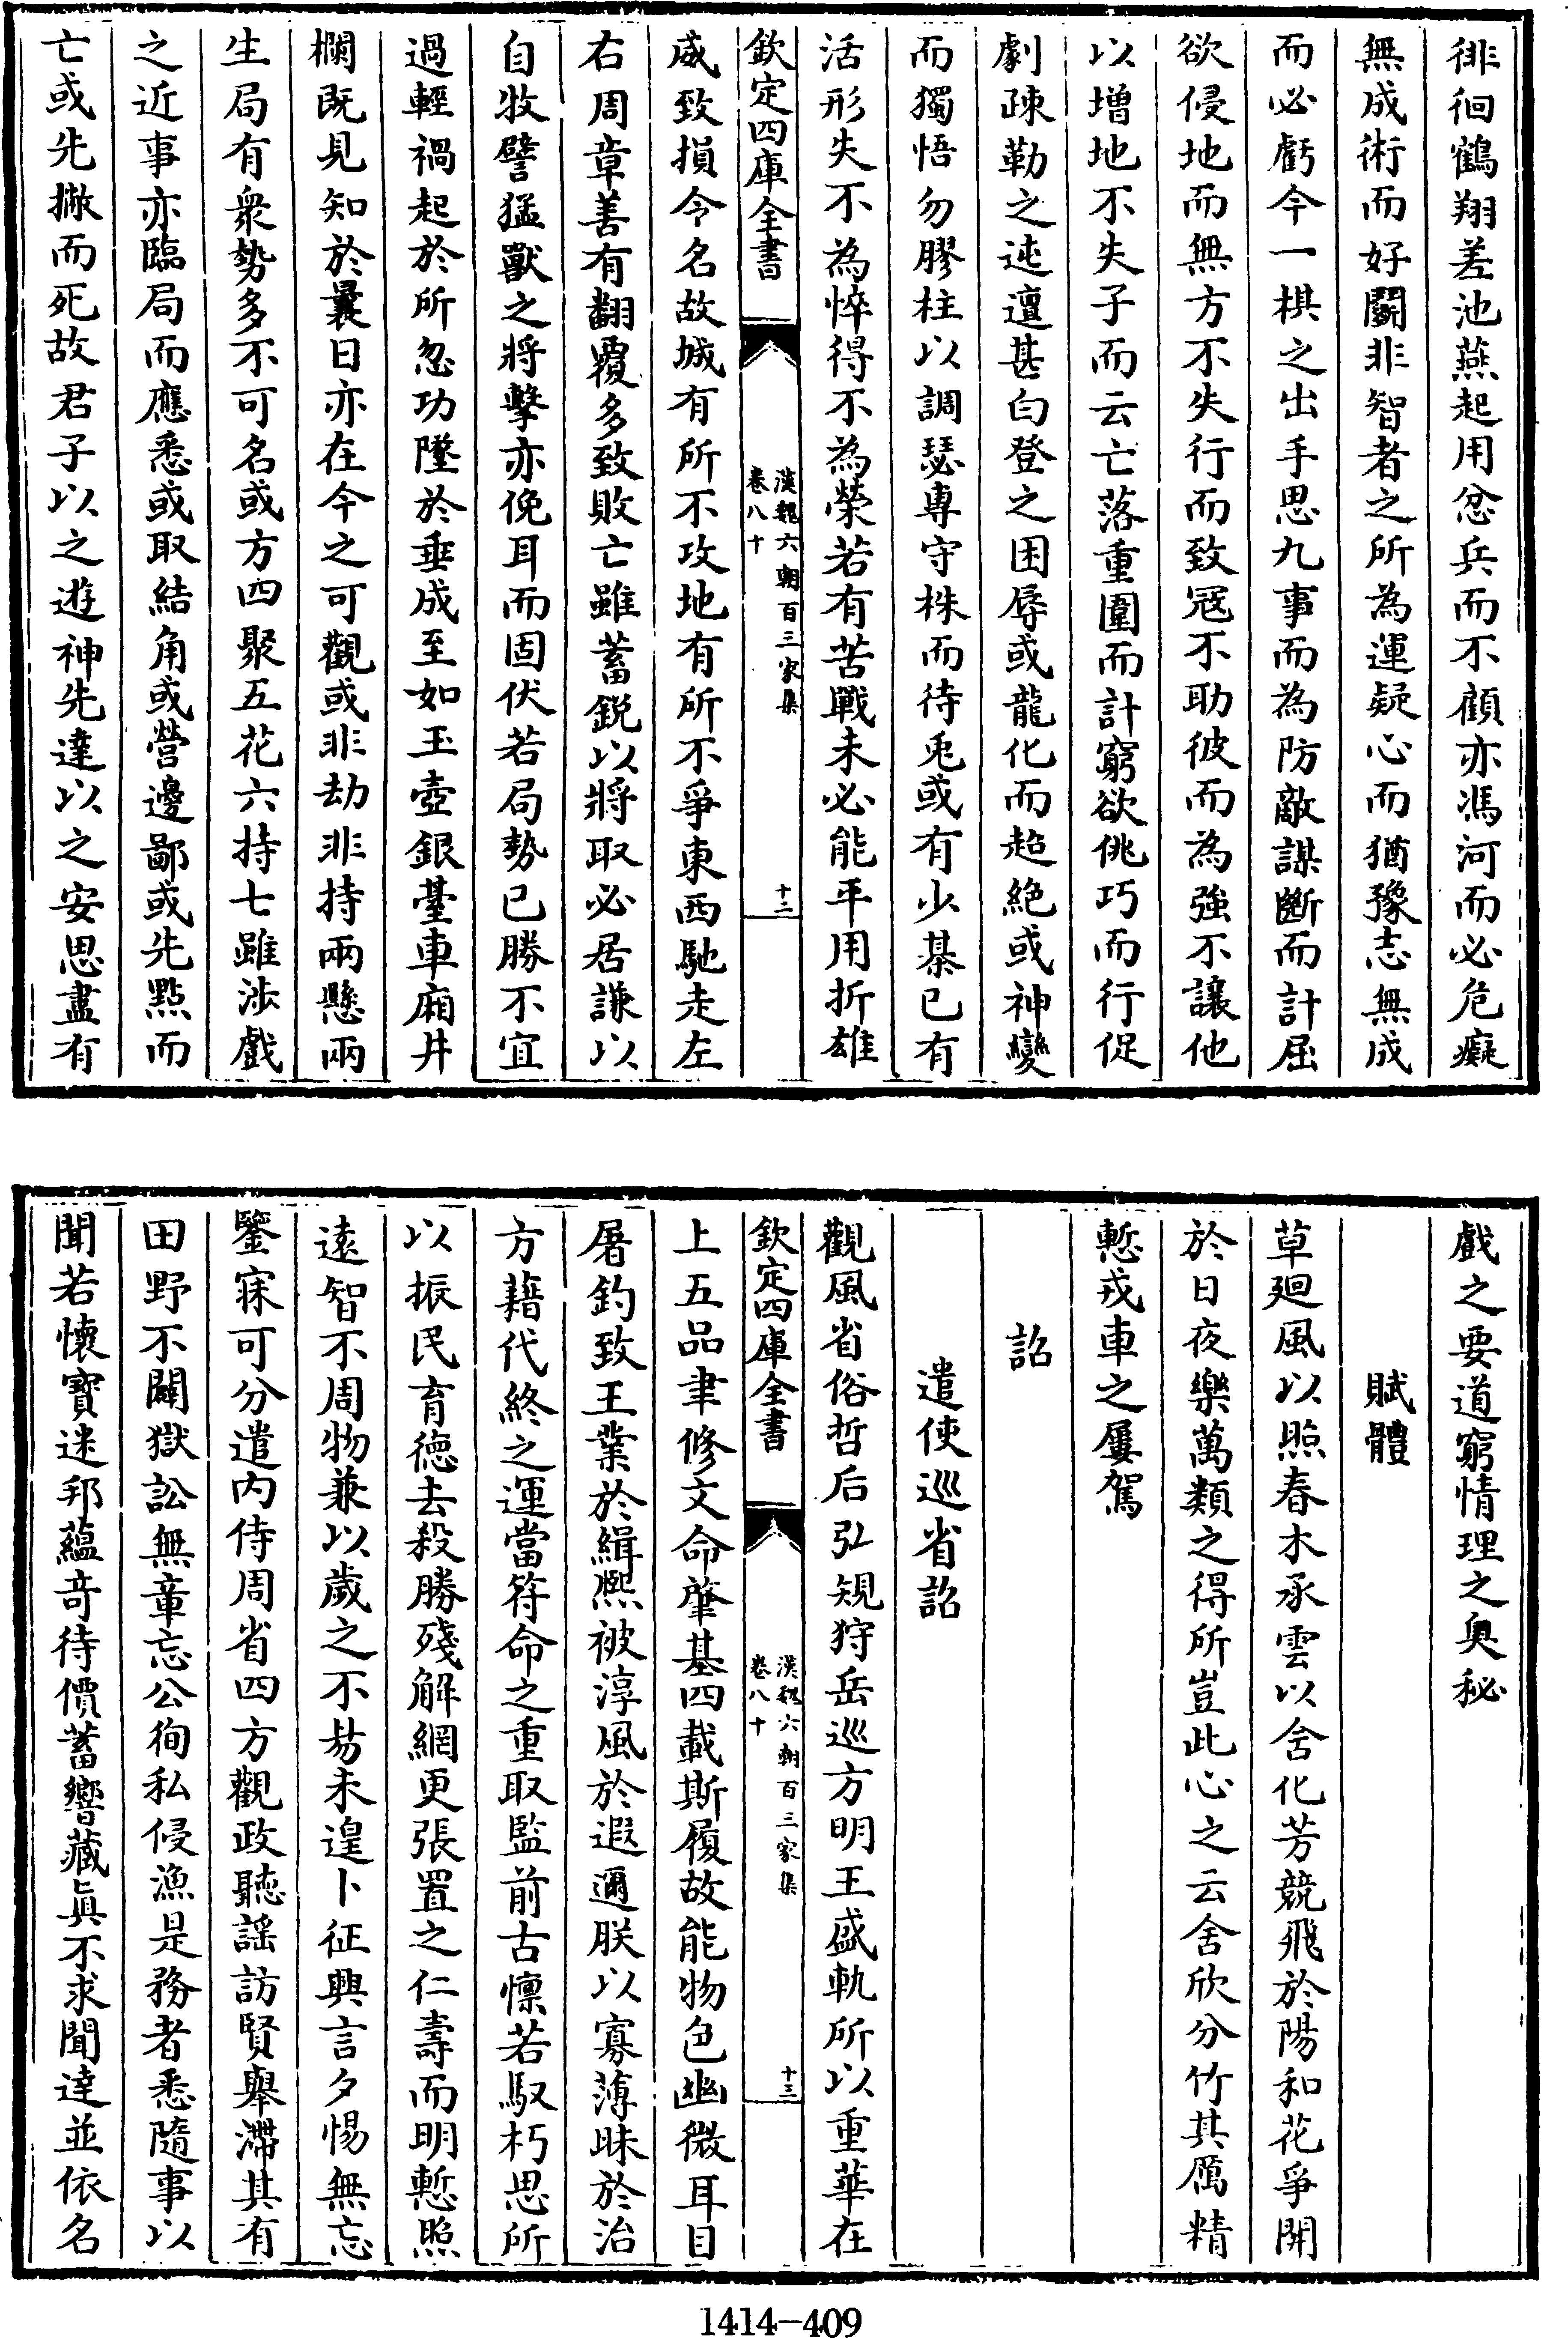 徘徊鶴翔差池燕起用忿兵而不顧亦馮河而必危癡
無成術而好鬬非智者之所為運疑心而猶豫志無成
而必虧今一棋之出手思九事而為防敵謀斷而計屈
欲侵地而無方不失行而致寇不助彼而為強不讓他
以增地不失子而云亡落重圍而計窮欲佻巧而行促
劇疎勒之迍邅甚白登之困辱或龍化而超絶或神變
而獨悟勿膠柱以調瑟專守株而待兎或有少棊已有
活形失不為悴得不為榮若有苦戰未必能平用折雄
欽定四庫全書
漢魏六朝百三家集
卷八十
十二
威致損令名故城有所不攻地有所不爭東西馳走左
右周章善有翻覆多致敗亡雖蓄鋭以將取必居謙以
自牧譬猛獸之將擊亦俛耳而固伏若局勢已勝不宜
過輕禍起於所忽功墜於垂成至如玉壺銀臺車廂井
欄既見知於曩日亦在今之可觀或非劫非持兩懸兩
生局有衆勢多不可名或方四聚五花六持七雖涉戲
之近事亦臨局而應悉或取結角或營邊鄙或先點而
亡或先撇而死故君子以之遊神先達以之安思盡有
戲之要道窮情理之奥秘
賦體
草廻風以照春木承雲以含化芳競飛於陽和花爭開
於日夜樂萬類之得所豈此心之云舍欣分竹其厲精
慙戎車之屢駕
詔
遣使巡省詔
觀風省俗哲后弘規狩岳巡方明王盛軌所以重華在
欽定四庫全書
漢魏六朝百三家集
卷八十
十三
上五品聿修文命肇基四載斯履故能物色幽微耳目
屠釣致王業於緝熙被淳風於遐邇朕以寡薄昧於治
方藉代終之運當符命之重取監前古懍若馭朽思所
以振民育徳去殺勝殘解網更張置之仁壽而明慙照
遠智不周物兼以歲之不易未遑卜征興言夕惕無忘
鑒寐可分遣内侍周省四方觀政聽謡訪賢舉滯其有
田野不闢獄訟無章忘公徇私侵漁是務者悉隨事以
聞若懷寶迷邦蘊奇待價蓄響藏眞不求聞達並依名
1414-409